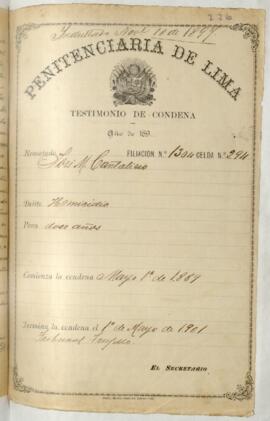 226
Indultado Novb 10 de 1897
PENITENCIARIA DE LIMA
TESTIMONIO DE CONDENA
Año de 189
Rematado José M. Cantalicio FILIACION. N.º 1304 CELDA N.º 294
Delito Homicidio
Pena doce años
Comienza la condena Mayo 1º de 1889
Termina la condena el 1º de Mayo de 1901
Tribunal Trujillo
EL SECRETARIO